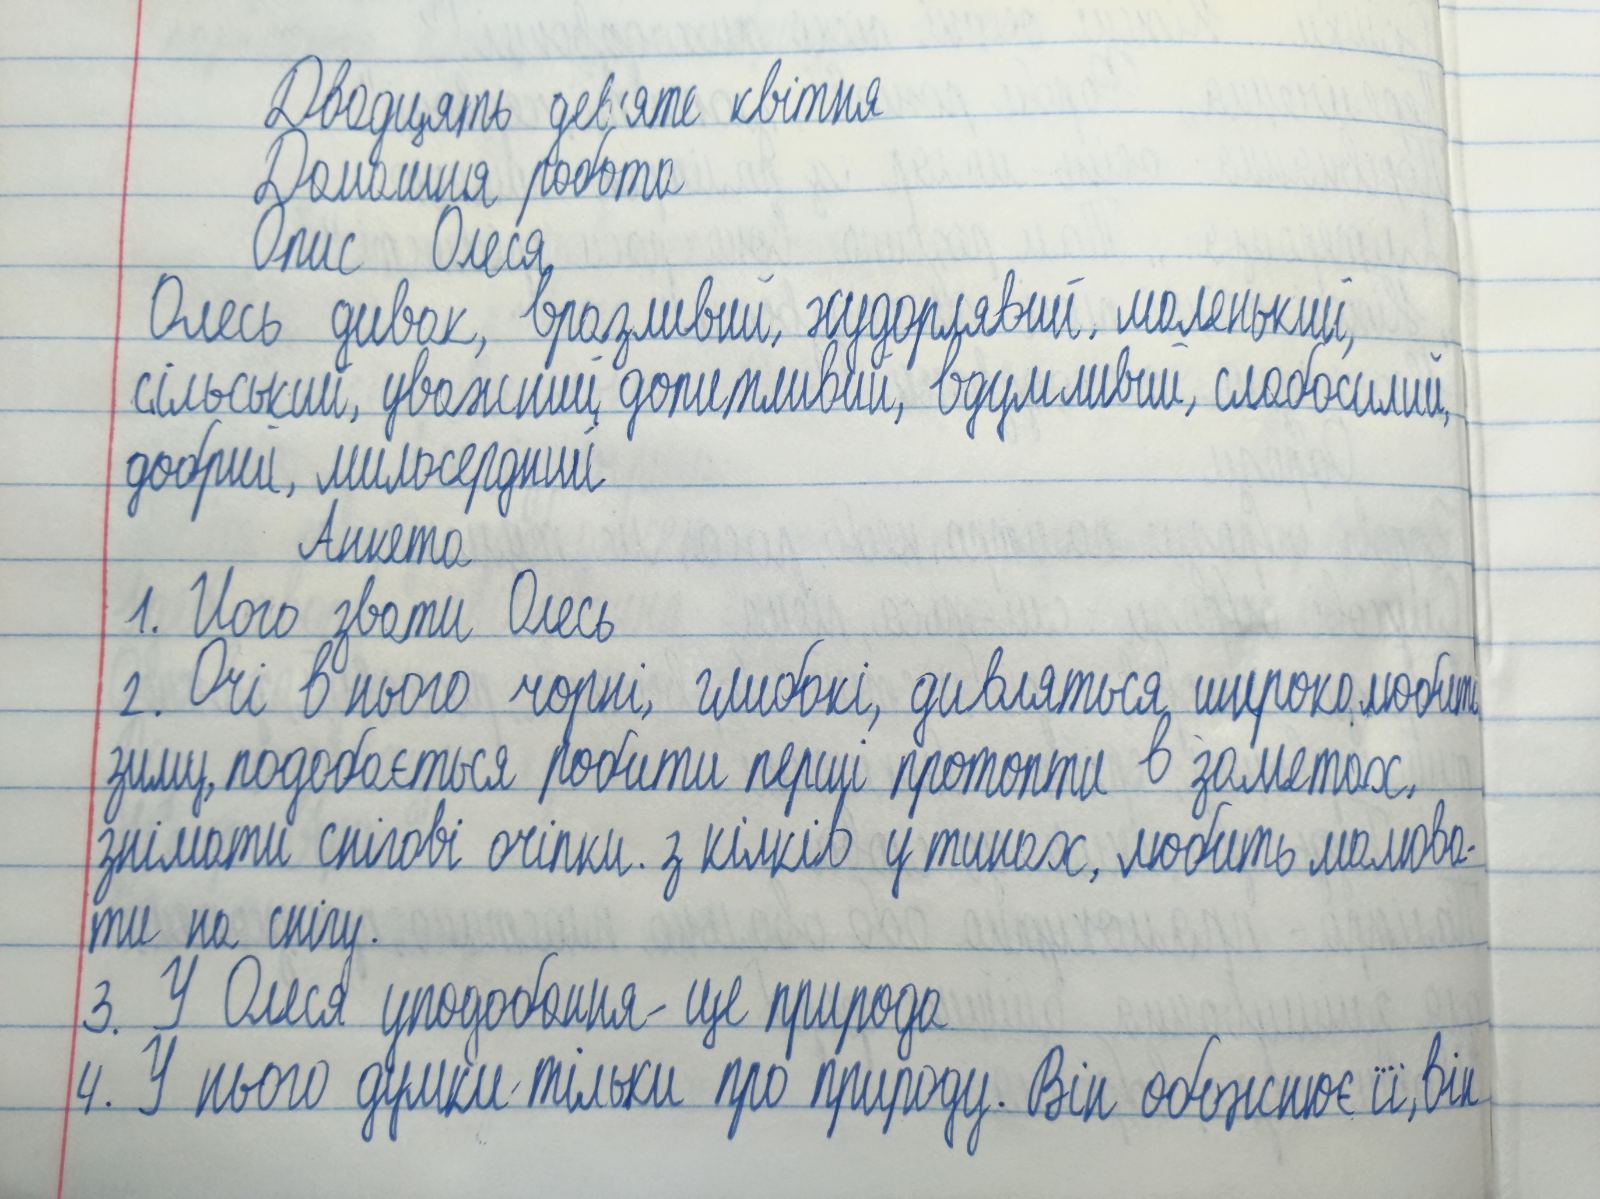 Двадцять дев'яте квітня
Домашня робота
Опис Олеся
Олесь дивак, вразливий, худорлявий, маленький,
сільський, уважний, допитливий, вдумливий, слабосилий,
добрий, милосердний
Анкета
1. Його звати Олесь
2. Очі в нього чорні, глибокі, дивляться широко, любить
зиму, подобається робити перші протопти в заметах,
знімати снігові очіпки з кілків у тинах, любить малюва-
ти на снігу.
3. У Олеся уподобання - це природа
4. У нього думки тільки про природу. Він обожнює її, він